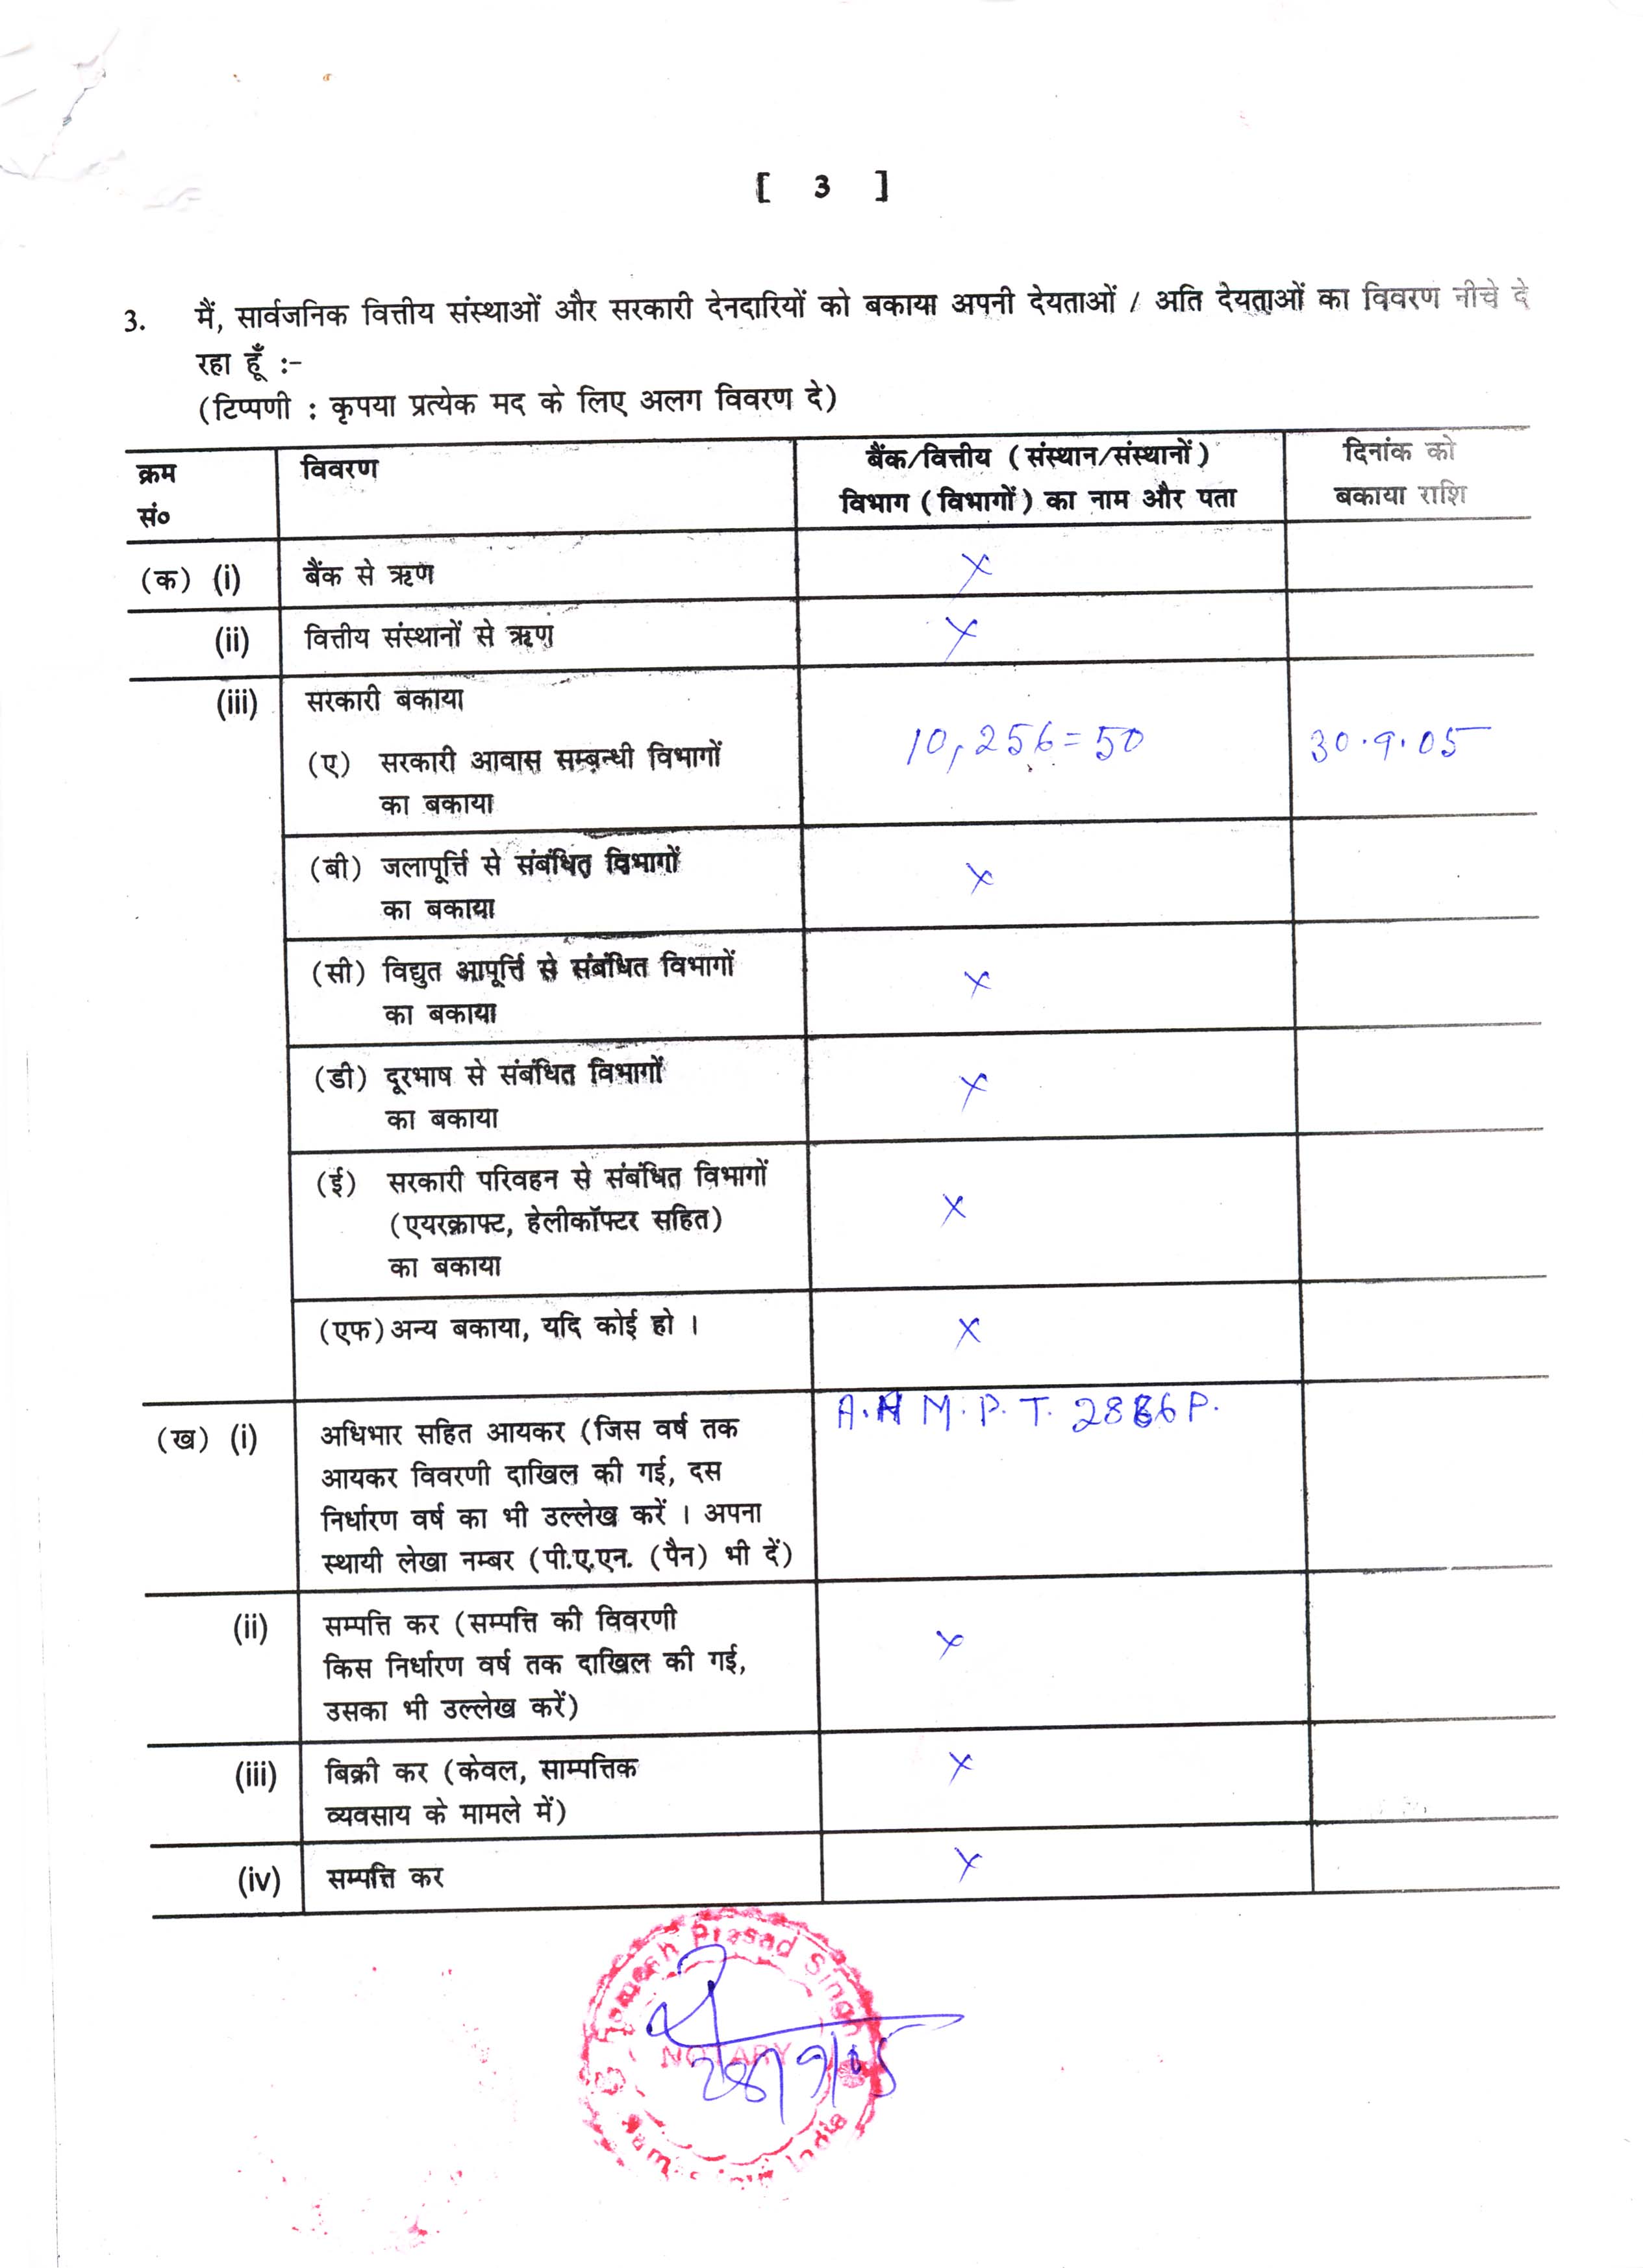 [ 3 ]
3. मैं, सार्वजनिक वित्तीय संस्थाओं और सरकारी देनदारियों को बकाया अपनी देयताओं / अति देयताओं का विवरण नीचे दे
रहा हूँ :-
(टिप्पणी : कृपया प्रत्येक मद के लिए अलग विवरण दे)
क्रम सं० विवरण बैंक/वित्तीय (संस्थान/संस्थानों) दिनांक को
विभाग (विभागों) का नाम और पता बकाया राशि
(क) (i) बैंक से ऋण X
(ii) वित्तीय संस्थानों से ऋण X
(iii) सरकारी बकाया
(ए) सरकारी आवास सम्बन्धी विभागों 10,256=50 30.9.05
का बकाया
(बी) जलापूर्त्ति से संबंधित विभागों X
का बकाया
(सी) विद्युत आपूर्त्ति से संबंधित विभागों X
का बकाया
(डी) दूरभाष से संबंधित विभागों X
का बकाया
(ई) सरकारी परिवहन से संबंधित विभागों X
(एयरक्राफ्ट, हेलीकॉप्टर सहित)
का बकाया
(एफ) अन्य बकाया, यदि कोई हो । X
A. M. P. T.
(ख) (i) अधिभार सहित आयकर (जिस वर्ष तक
आयकर विवरणी दाखिल की गई, दस
निर्धारण वर्ष का भी उल्लेख करें । अपना
स्थायी लेखा नम्बर (पी.ए.एन. (पैन) भी दें)
(ii) सम्पत्ति कर (सम्पत्ति की विवरणी X
किस निर्धारण वर्ष तक दाखिल की गई,
उसका भी उल्लेख करें)
(iii) बिक्री कर (केवल, साम्पत्तिक X
व्यवसाय के मामले में)
(iv) सम्पत्ति कर X
Prasad Singh
NOTARY
India